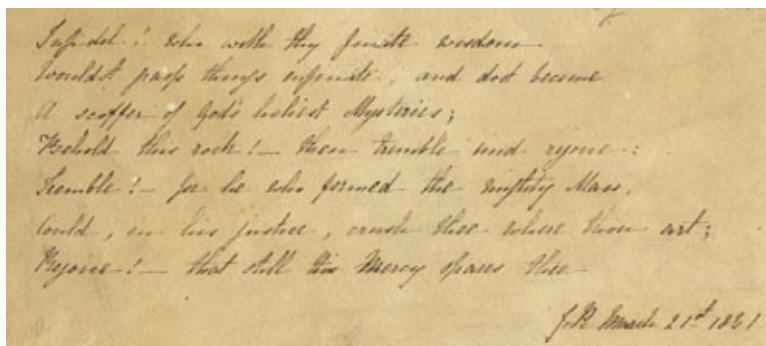 Infidel! who with thy finite wisdom
Wouldst grasp things infinite, and dost become
A scoffer of God's holiest Mysteries;
Behold this rock! — then tremble and rejoice:
Tremble! — for he who formed the mighty Mass,
Could, in his justice, crush thee where thou art;
Rejoice! — that still his Mercy spares thee
J.R. March 21st 1831